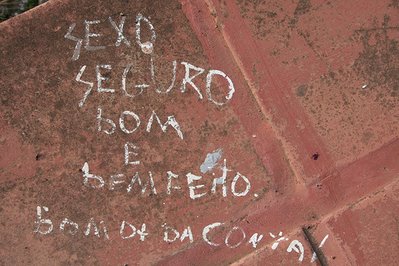 SEXO
SEGURO
bom
E
bEmFEitO
bom dE DA CONtA